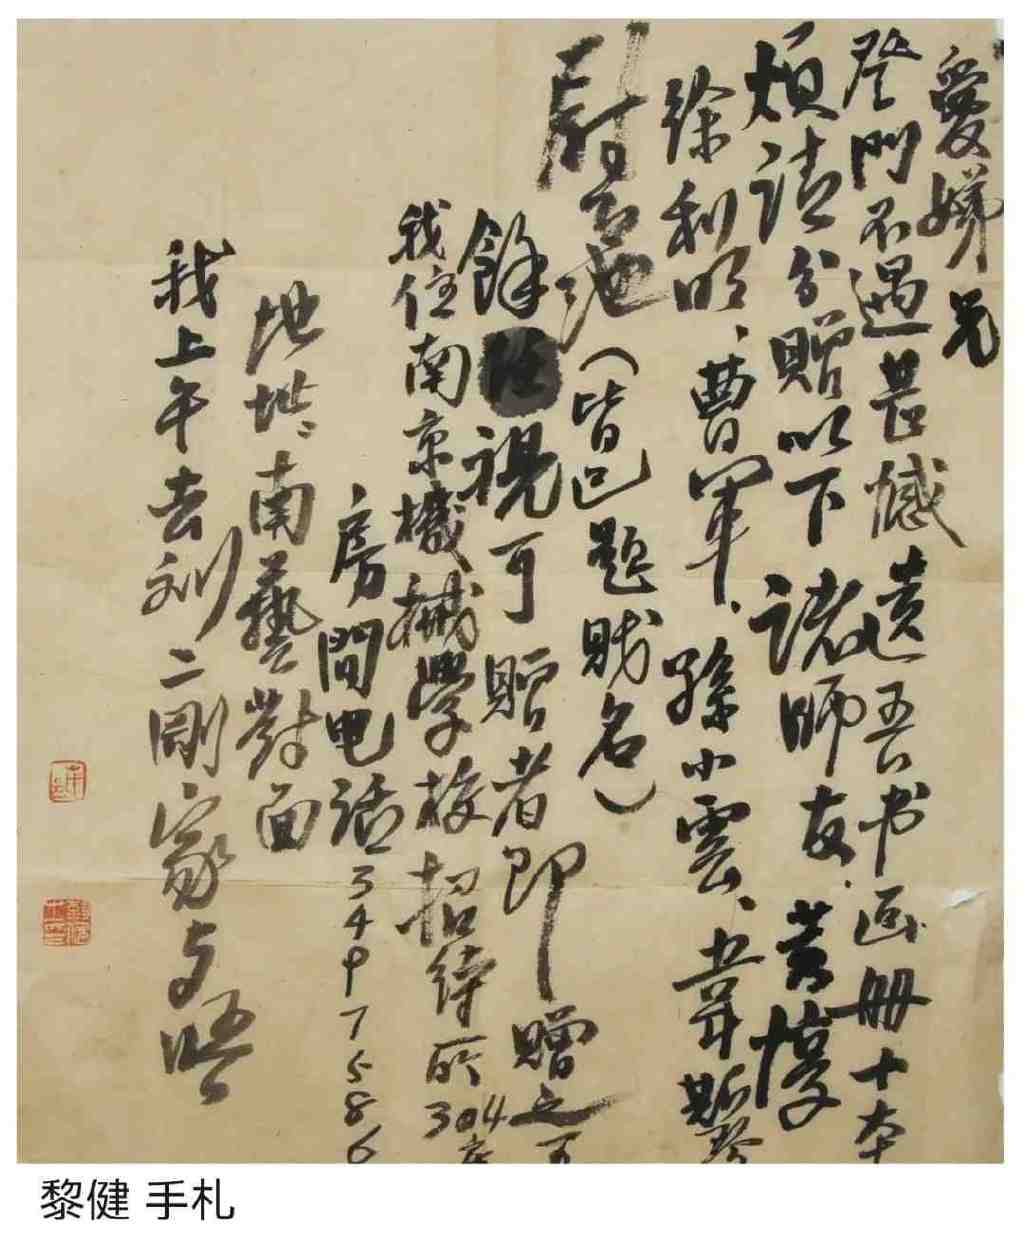 爱娣兄
登門不遇甚憾遗吾书画册十本
烦请分赠以下諸师友黄惇
徐利明、曹军、孫小雲、韋斯琴
尉天池（皆已题贱名）
餘 視可贈者即赠之可
我住南京機械學校招待所304房
房間电话3497586
地址：南藝對面
我上午去刘二刚家与晤
黎健 手札